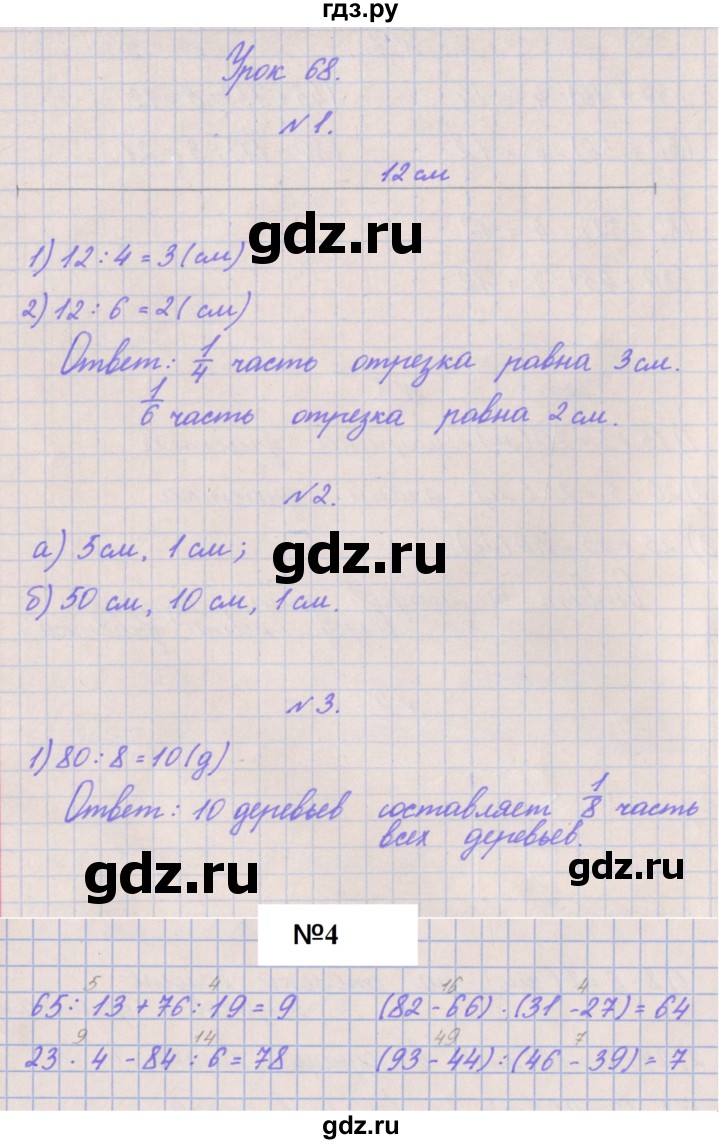 гдз.ру
Урок 68.
№1.
12 см
gdz.ru
1) 12 : 4 = 3 (см)
2) 12 : 6 = 2 (см)
Ответ: 1/4 часть отрезка равна 3 см.
1/6 часть отрезка равна 2 см.
№2.
а) 5 см, 1 см;
gdz.ru
б) 50 см, 10 см, 1 см.
№3.
1) 80 : 8 = 10 (д)
Ответ: 10 деревьев составляет 1/8 часть
всех деревьев.
gdz.ru
gdz.ru
№4
5 4 16 4
65 : 13 + 76 : 19 = 9 (82 - 66) · (31 - 27) = 64
9 14 49 7
23 · 4 - 84 : 6 = 78 (93 - 44) : (46 - 39) = 7
gdz.ru